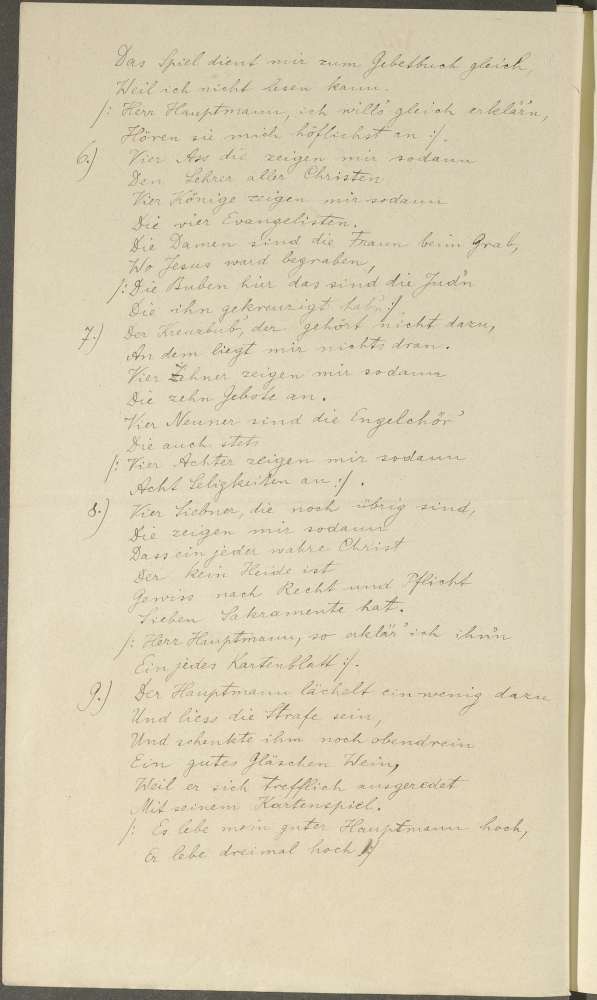 Das Spiel dient mir zum Gebetbuch gleich,
Weil ich nicht lesen kann.
/: Herr Hauptmann, ich will's gleich erklär'n,
Hören sie mich höflichst an :/.
6.) Vier Ass die zeigen mir sodann
Den Lehrer aller Christen
Vier Könige zeigen mir sodann
Die vier Evangelisten.
Die Damen sind die Fraun beim Grab,
Wo Jesus ward begraben,
/: Die Buben hier das sind die Jud'n
Die ihn gekreuzigt hab'n :/
7.) Der Kreuzbub', der gehört nicht dazu,
An dem liegt mir nichts dran.
Vier Zehner zeigen mir sodann
Die zehn Gebote an.
Vier Neuner sind die Engelchör'
Die auch stets
/: Vier Achter zeigen mir sodann
Acht Seligkeiten an :/.
8.) Vier Siebner, die noch übrig sind,
Die zeigen mir sodann
Dass ein jeder wahre Christ
Der kein Heide ist
Gewiss nach Recht und Pflicht
Sieben Sakramente hat.
/: Herr Hauptmann, so erklär' ich ihn'n
Ein jedes Kartenblatt :/.
9.) Der Hauptmann lächelt ein wenig dazu
Und liess die Strafe sein,
Und schenkte ihm noch obendrein
Ein gutes Gläschen Wein,
Weil er sich trefflich ausgeredet
Mit seinem Kartenspiel.
/: Es lebe mein guter Hauptmann hoch,
Er lebe dreimal hoch :/